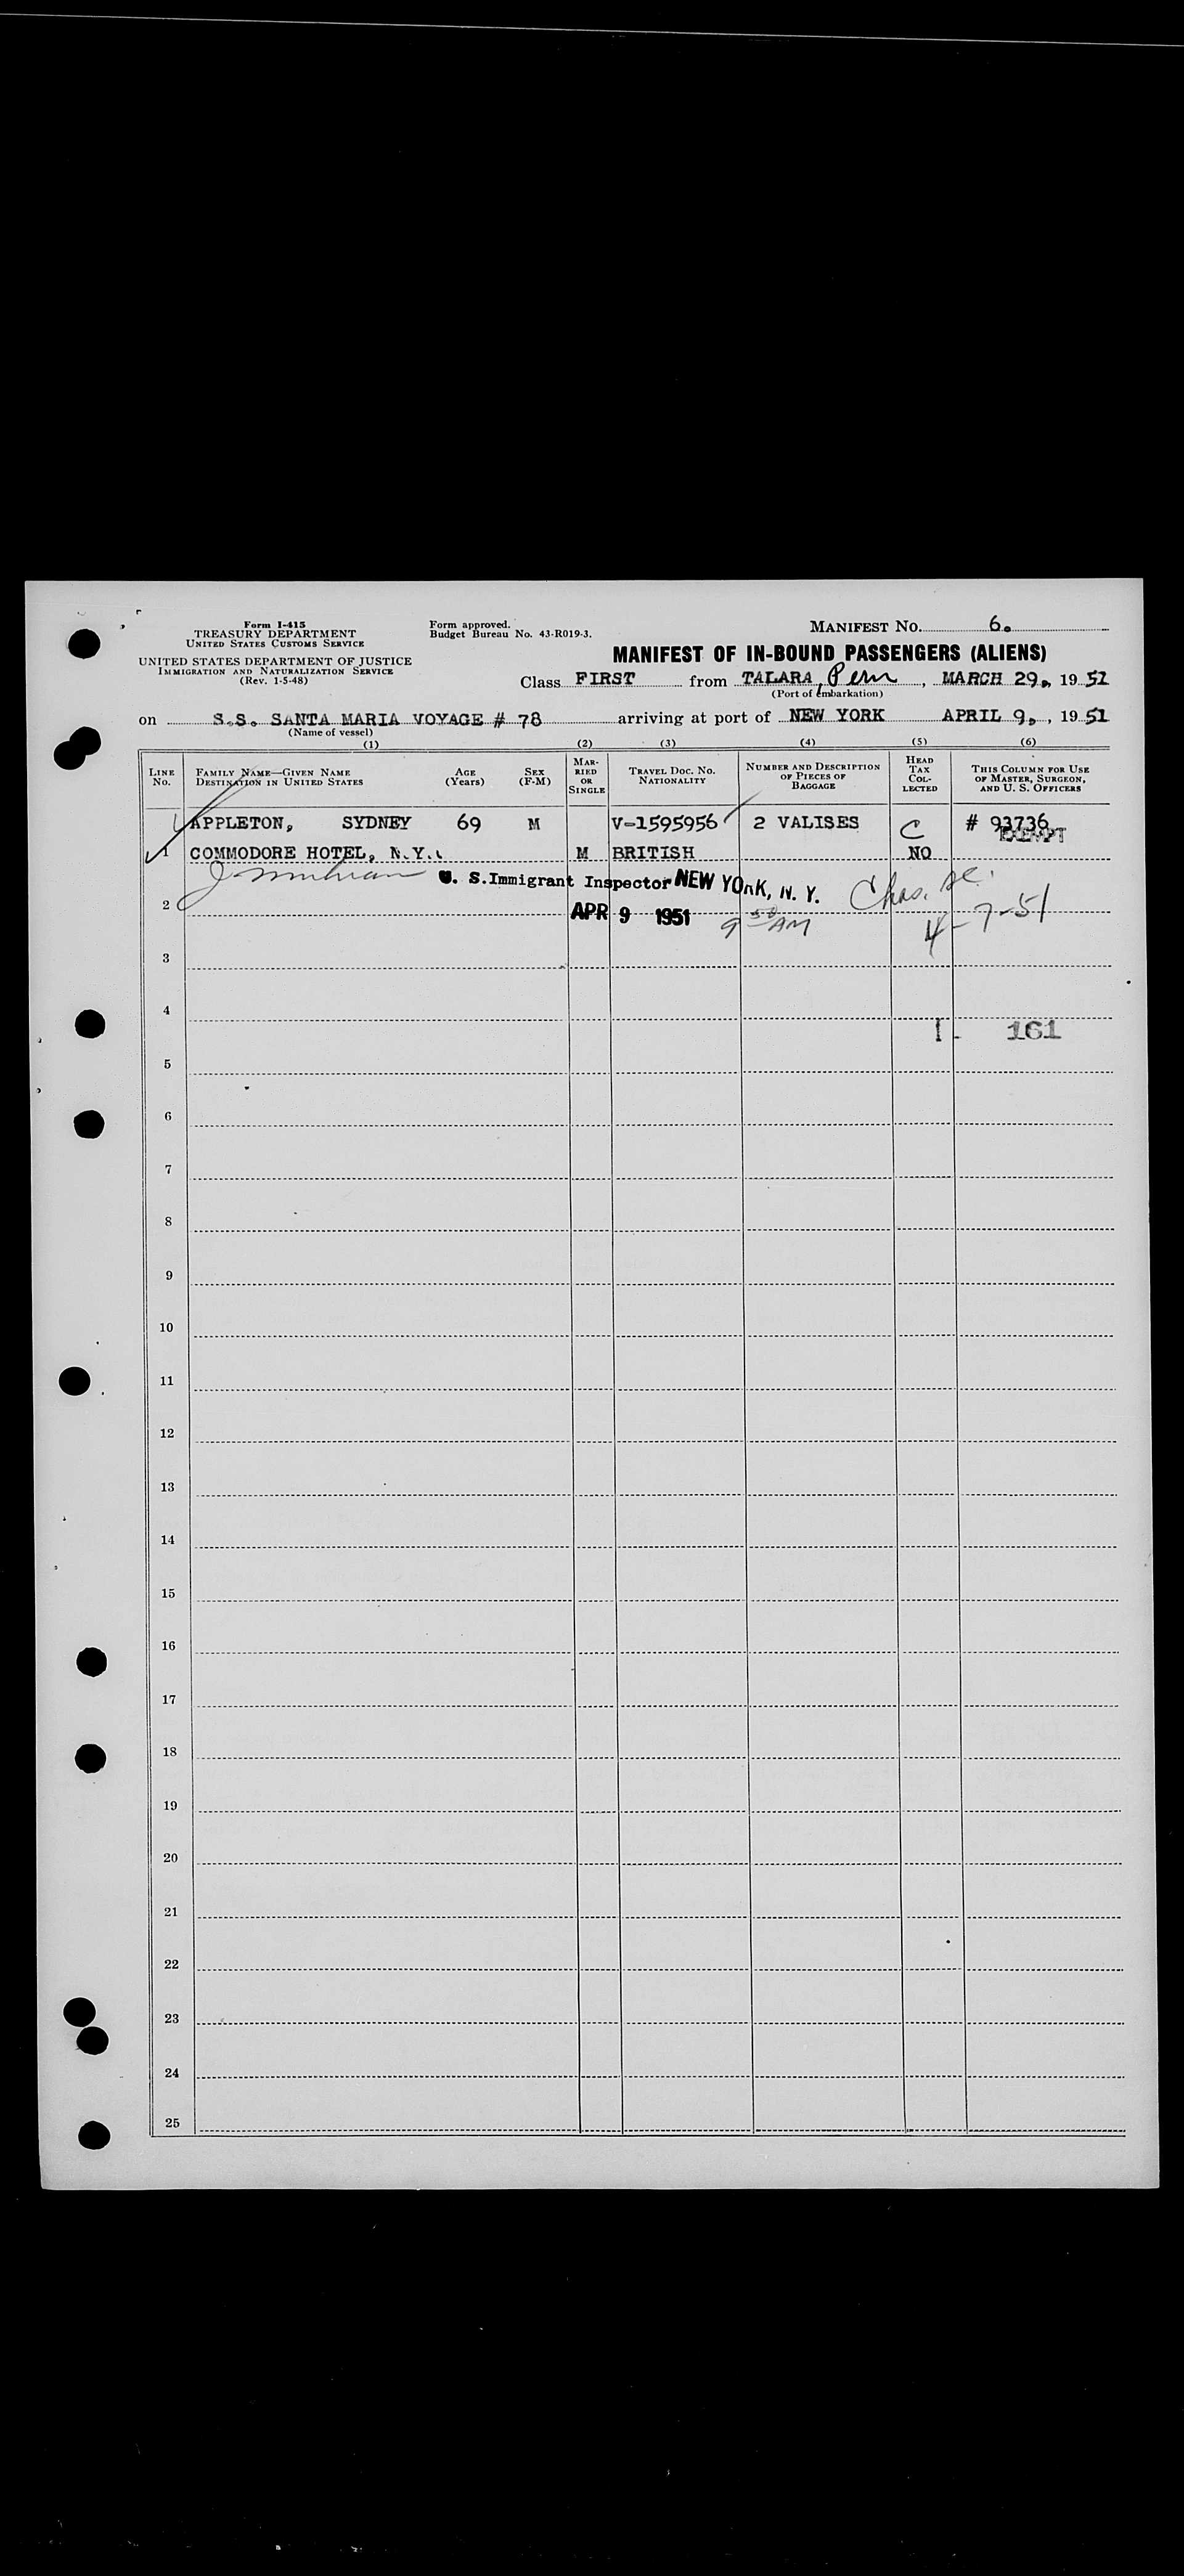 Form I-415
TREASURY DEPARTMENT
UNITED STATES CUSTOMS SERVICE
UNITED STATES DEPARTMENT OF JUSTICE
IMMIGRATION AND NATURALIZATION SERVICE
(Rev. 1-5-48)
Form approved.
Budget Bureau No. 43-R019-3.
MANIFEST NO. 6.
MANIFEST OF IN-BOUND PASSENGERS (ALIENS)
Class FIRST from TALARA, Peru, MARCH 29, 1951
(Port of embarkation)
on S.S. SANTA MARIA VOYAGE # 78 arriving at port of NEW YORK APRIL 9, 1951
(Name of vessel)
(1) (2) (3) (4) (5) (6)
LINE NO.
FAMILY NAME—GIVEN NAME
DESTINATION IN UNITED STATES
AGE (Years)
SEX (F-M)
MARRIED OR SINGLE
TRAVEL DOC. NO. NATIONALITY
NUMBER AND DESCRIPTION OF PIECES OF BAGGAGE
HEAD TAX COLLECTED
THIS COLUMN FOR USE OF MASTER, SURGEON, AND U. S. OFFICERS
APPLETON, SYDNEY 69 M V-1595956 2 VALISES C # 93736
EXEMPT
1 COMMODORE HOTEL, N.Y. M BRITISH NO
U. S. Immigrant Inspector NEW YORK, N. Y. Chas.
2 APR 9 1951 9 50 AM 4-7-51
3
4
I- 161
5
6
7
8
9
10
11
12
13
14
15
16
17
18
19
20
21
22
23
24
25